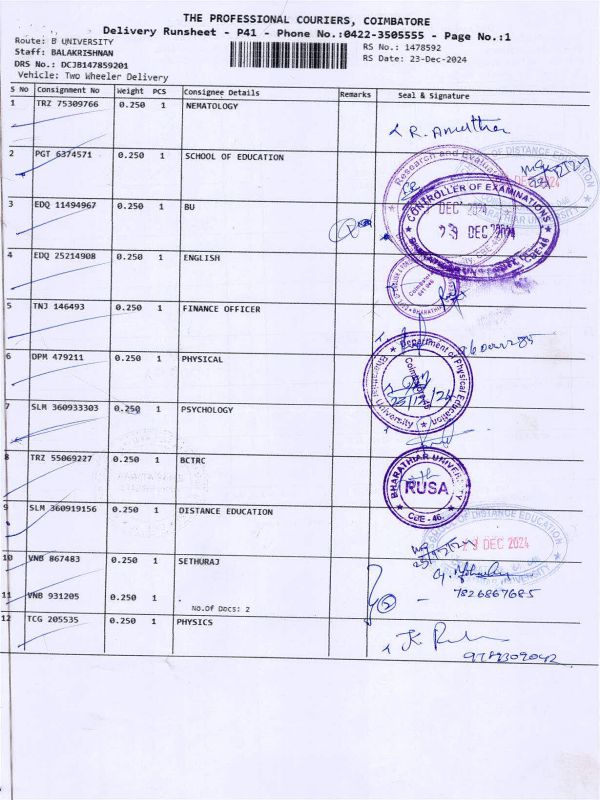 THE PROFESSIONAL COURIERS, COIMBATORE
Delivery Runsheet - P41 - Phone No.:0422-3505555 - Page No.:1
Route: B UNIVERSITY
RS No.: 1478592
Staff: BALAKRISHNAN
RS Date: 23-Dec-2024
DRS No.: DCJB147859201
Vehicle: Two Wheeler Delivery
S No Consignment No Weight PCS Consignee Details Remarks Seal & Signature
1 TRZ 75309766 0.250 1 NEMATOLOGY
2 PGT 6374571 0.250 1 SCHOOL OF EDUCATION
Research and
DISTANCE EDUCATION
DEC 2024
CONTROLLER OF EXAMINATIONS
3 EDQ 11494967 0.250 1 BU
DEC 2024
4 EDQ 25214908 0.250 1 ENGLISH
5 TNJ 146493 0.250 1 FINANCE OFFICER
6 DPM 479211 0.250 1 PHYSICAL
Department of Physical Education
Bharathiar University
23/12/24
7 SLM 360933303 0.250 1 PSYCHOLOGY
8 TRZ 55069227 0.250 1 BCTRC
BHARATHIAR UNIVERSITY
RUSA
CBE - 46.
9 SLM 360919156 0.250 1 DISTANCE EDUCATION
DISTANCE EDUCATION
DEC 2024
10 VNB 867483 0.250 1 SETHURAJ
7826867685
11 VNB 931205 0.250 1
No.Of Docs: 2
12 TCG 205535 0.250 1 PHYSICS
9789309042